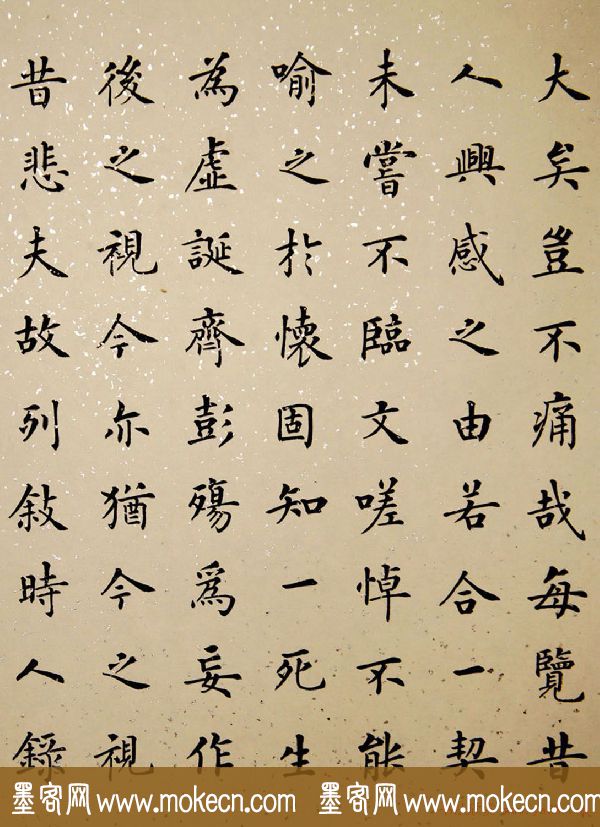 大矣豈不痛哉每覽昔
人興感之由若合一契
未嘗不臨文嗟悼不能
喻之於懷固知一死生
為虛誕齊彭殤爲妄作
後之視今亦猶今之視
昔悲夫故列敍時人錄
墨客网 www.mokecn.com 墨客网 www.mokecn.com